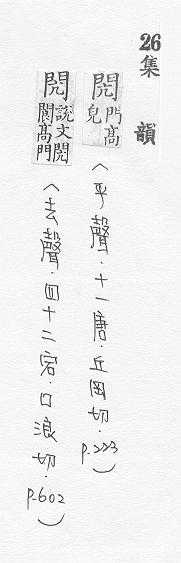 26集 韻
閌 門高皃（平聲．十一唐．丘岡切．p.223）
閌 說文閌閬高門（去聲．四十二宕．口浪切．p.602）